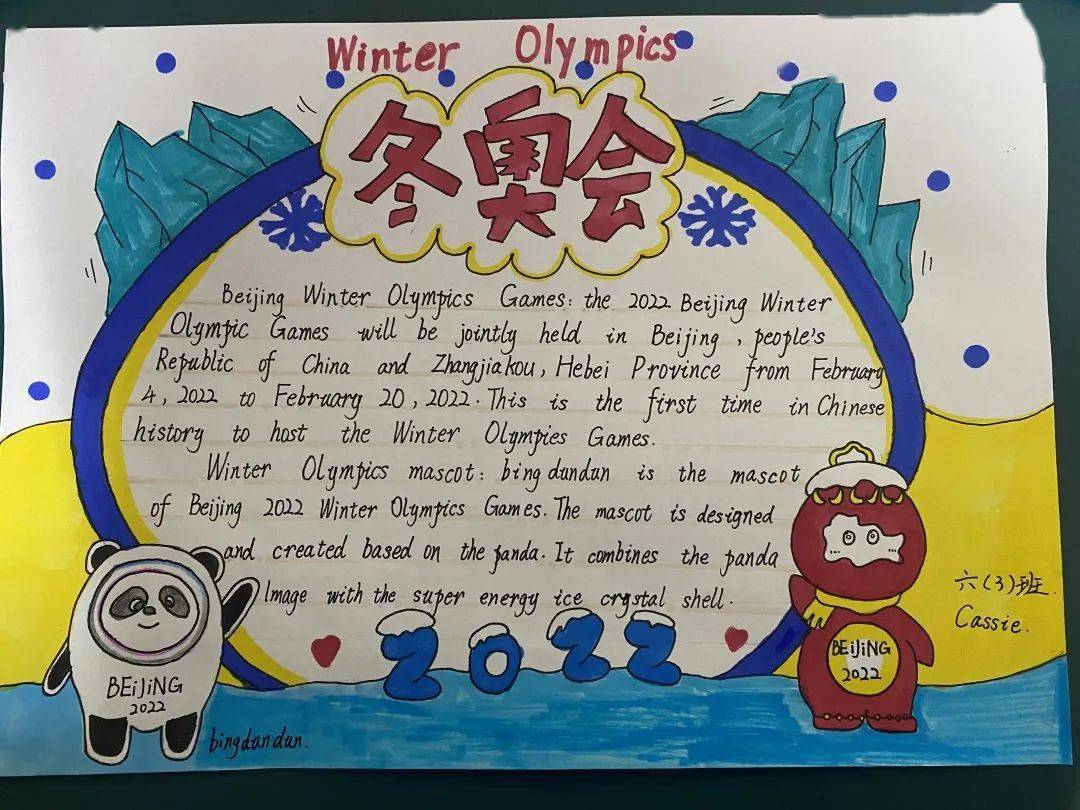 Winter Olympics
冬奥会
Beijing Winter Olympics Games: the 2022 Beijing Winter
Olympic Games will be jointly held in Beijing, people's
Republic of China and Zhangjiakou, Hebei Province from February
4, 2022 to February 20, 2022. This is the first time in Chinese
history to host the Winter Olympies Games.
Winter Olympics mascot: bing dundun is the mascot
of Beijing 2022 Winter Olympics Games. The mascot is designed
and created based on the panda. It combines the panda
Image with the super energy ice crystal shell.
2022
BEiJiNG
2022
bingdundun.
BEIJING
2022
六(3)班.
Cassie.